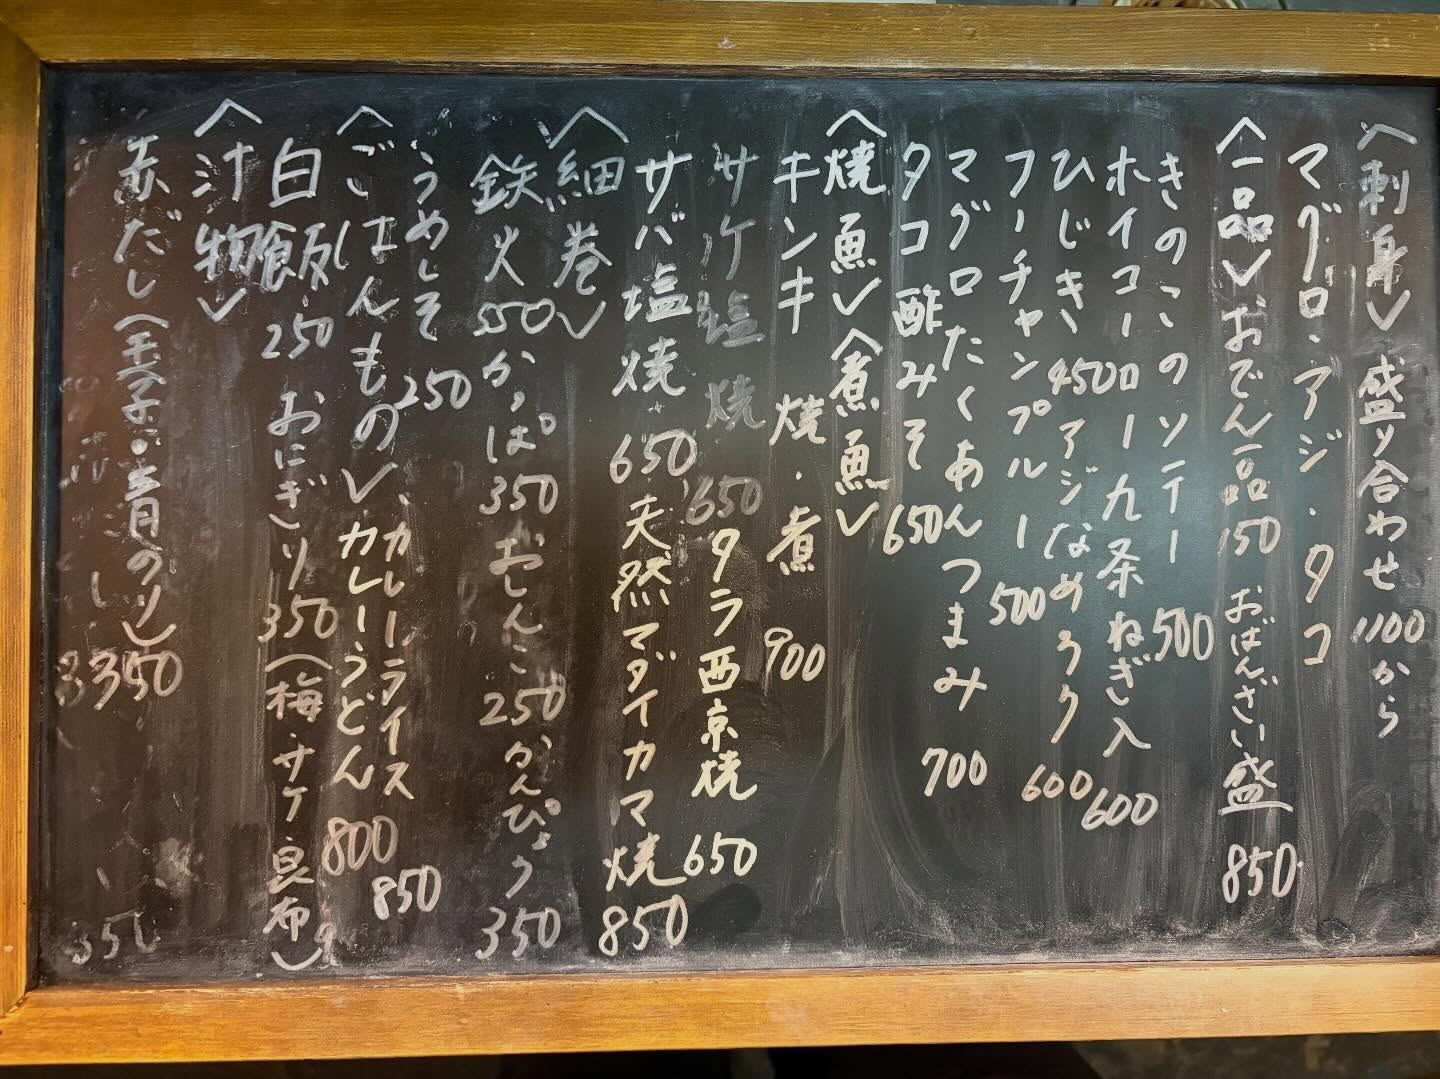 〈刺身〉盛り合わせ1100から
マグロ・アジ・タコ
〈一品〉おでん一品150 おばんざい盛850
きのこのソテー 500
ホイコーロー九条ねぎ入600
ひじき450アジなめろう600
フーチャンプルー500
マグロたくあんつまみ 700
タコ酢みそ650
〈焼魚〉〈煮魚〉
キンキ 焼・煮 900
サケ塩焼 650タラ西京焼 650
サバ塩焼 650天然マダイカマ焼850
〈細巻〉
鉄火550かっぱ350おしんこ250かんぴょう350
うめしそ250
〈ごはんもの〉カレーライス850
カレーうどん800
白飯250 おにぎり350(梅・サケ・昆布)
〈汁物〉
赤だし(玉子・青のり)350